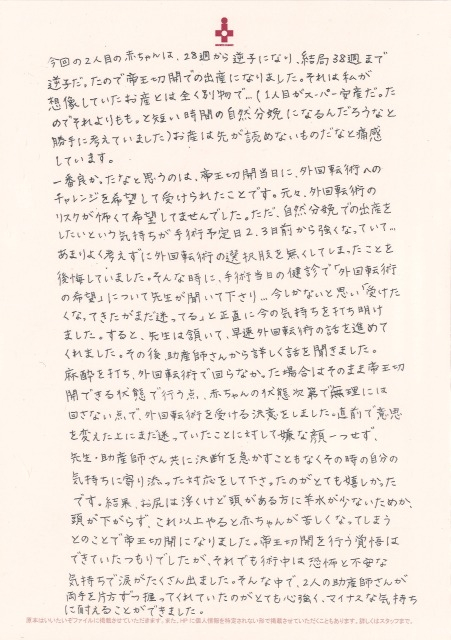 今回の2人目の赤ちゃんは、28週から逆子になり、結局38週まで
逆子だったので帝王切開での出産になりました。それは私が
想像していたお産とは全く別物で…(1人目がスーパー安産だった
のでそれよりももっと短い時間の自然分娩になるんだろうなと
勝手に考えていました)お産は先が読めないものだなと痛感
しています。
一番良かったなと思うのは、帝王切開当日に、外回転術への
チャレンジを希望して受けられたことです。元々、外回転術の
リスクが怖くて希望してませんでした。ただ、自然分娩での出産を
したいという気持ちが手術予定日2、3日前から強くなっていて…
あまりよく考えずに外回転術の選択肢を無くしてしまったことを
後悔していました。そんな時に、手術当日の健診で「外回転術
の希望」について先生が聞いて下さり…今しかないと思い「受けた
くなってきたがまだ迷ってる」と正直に今の気持ちを打ち明け
ました。すると、先生は頷いて、早速外回転術の話を進めて
くれました。その後、助産師さんから詳しく話を聞きました。
麻酔を打ち、外回転術で回らなかった場合はそのまま帝王切
開できる状態で行う点、赤ちゃんの状態次第で無理には
回さない点で、外回転術を受ける決意をしました。直前で意思
を変えた上にまだ迷っていたことに対して嫌な顔一つせず、
先生・助産師さん共に決断を急かすこともなくその時の自分の
気持ちに寄り添った対応をして下さったのがとても嬉しかった
です。結果、お尻は浮くけど頭がある方に羊水が少ないためか、
頭が下がらず、これ以上やると赤ちゃんが苦しくなってしまう
とのことで帝王切開になりました。帝王切開を行う覚悟は
できていたつもりでしたが、それでも術中は恐怖と不安な
気持ちで涙がたくさん出ました。そんな中で、2人の助産師さんが
両手を片方ずつ握ってくれていたのがとても心強く、マイナスな気持ち
に耐えることができました。
原本はいいたいぞファイルに掲載させていただきます。また、HPに個人情報を特定されない形で掲載させていただくこともあります。詳しくはスタッフまで。